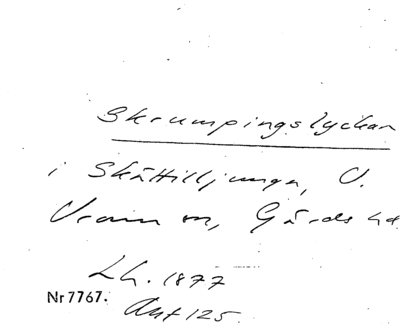 Skrumpingslyckan
i Skättilljunga, V.
Vram sn, Gärds hd.
Lh. 1877
Nr 7767.
Ant 125